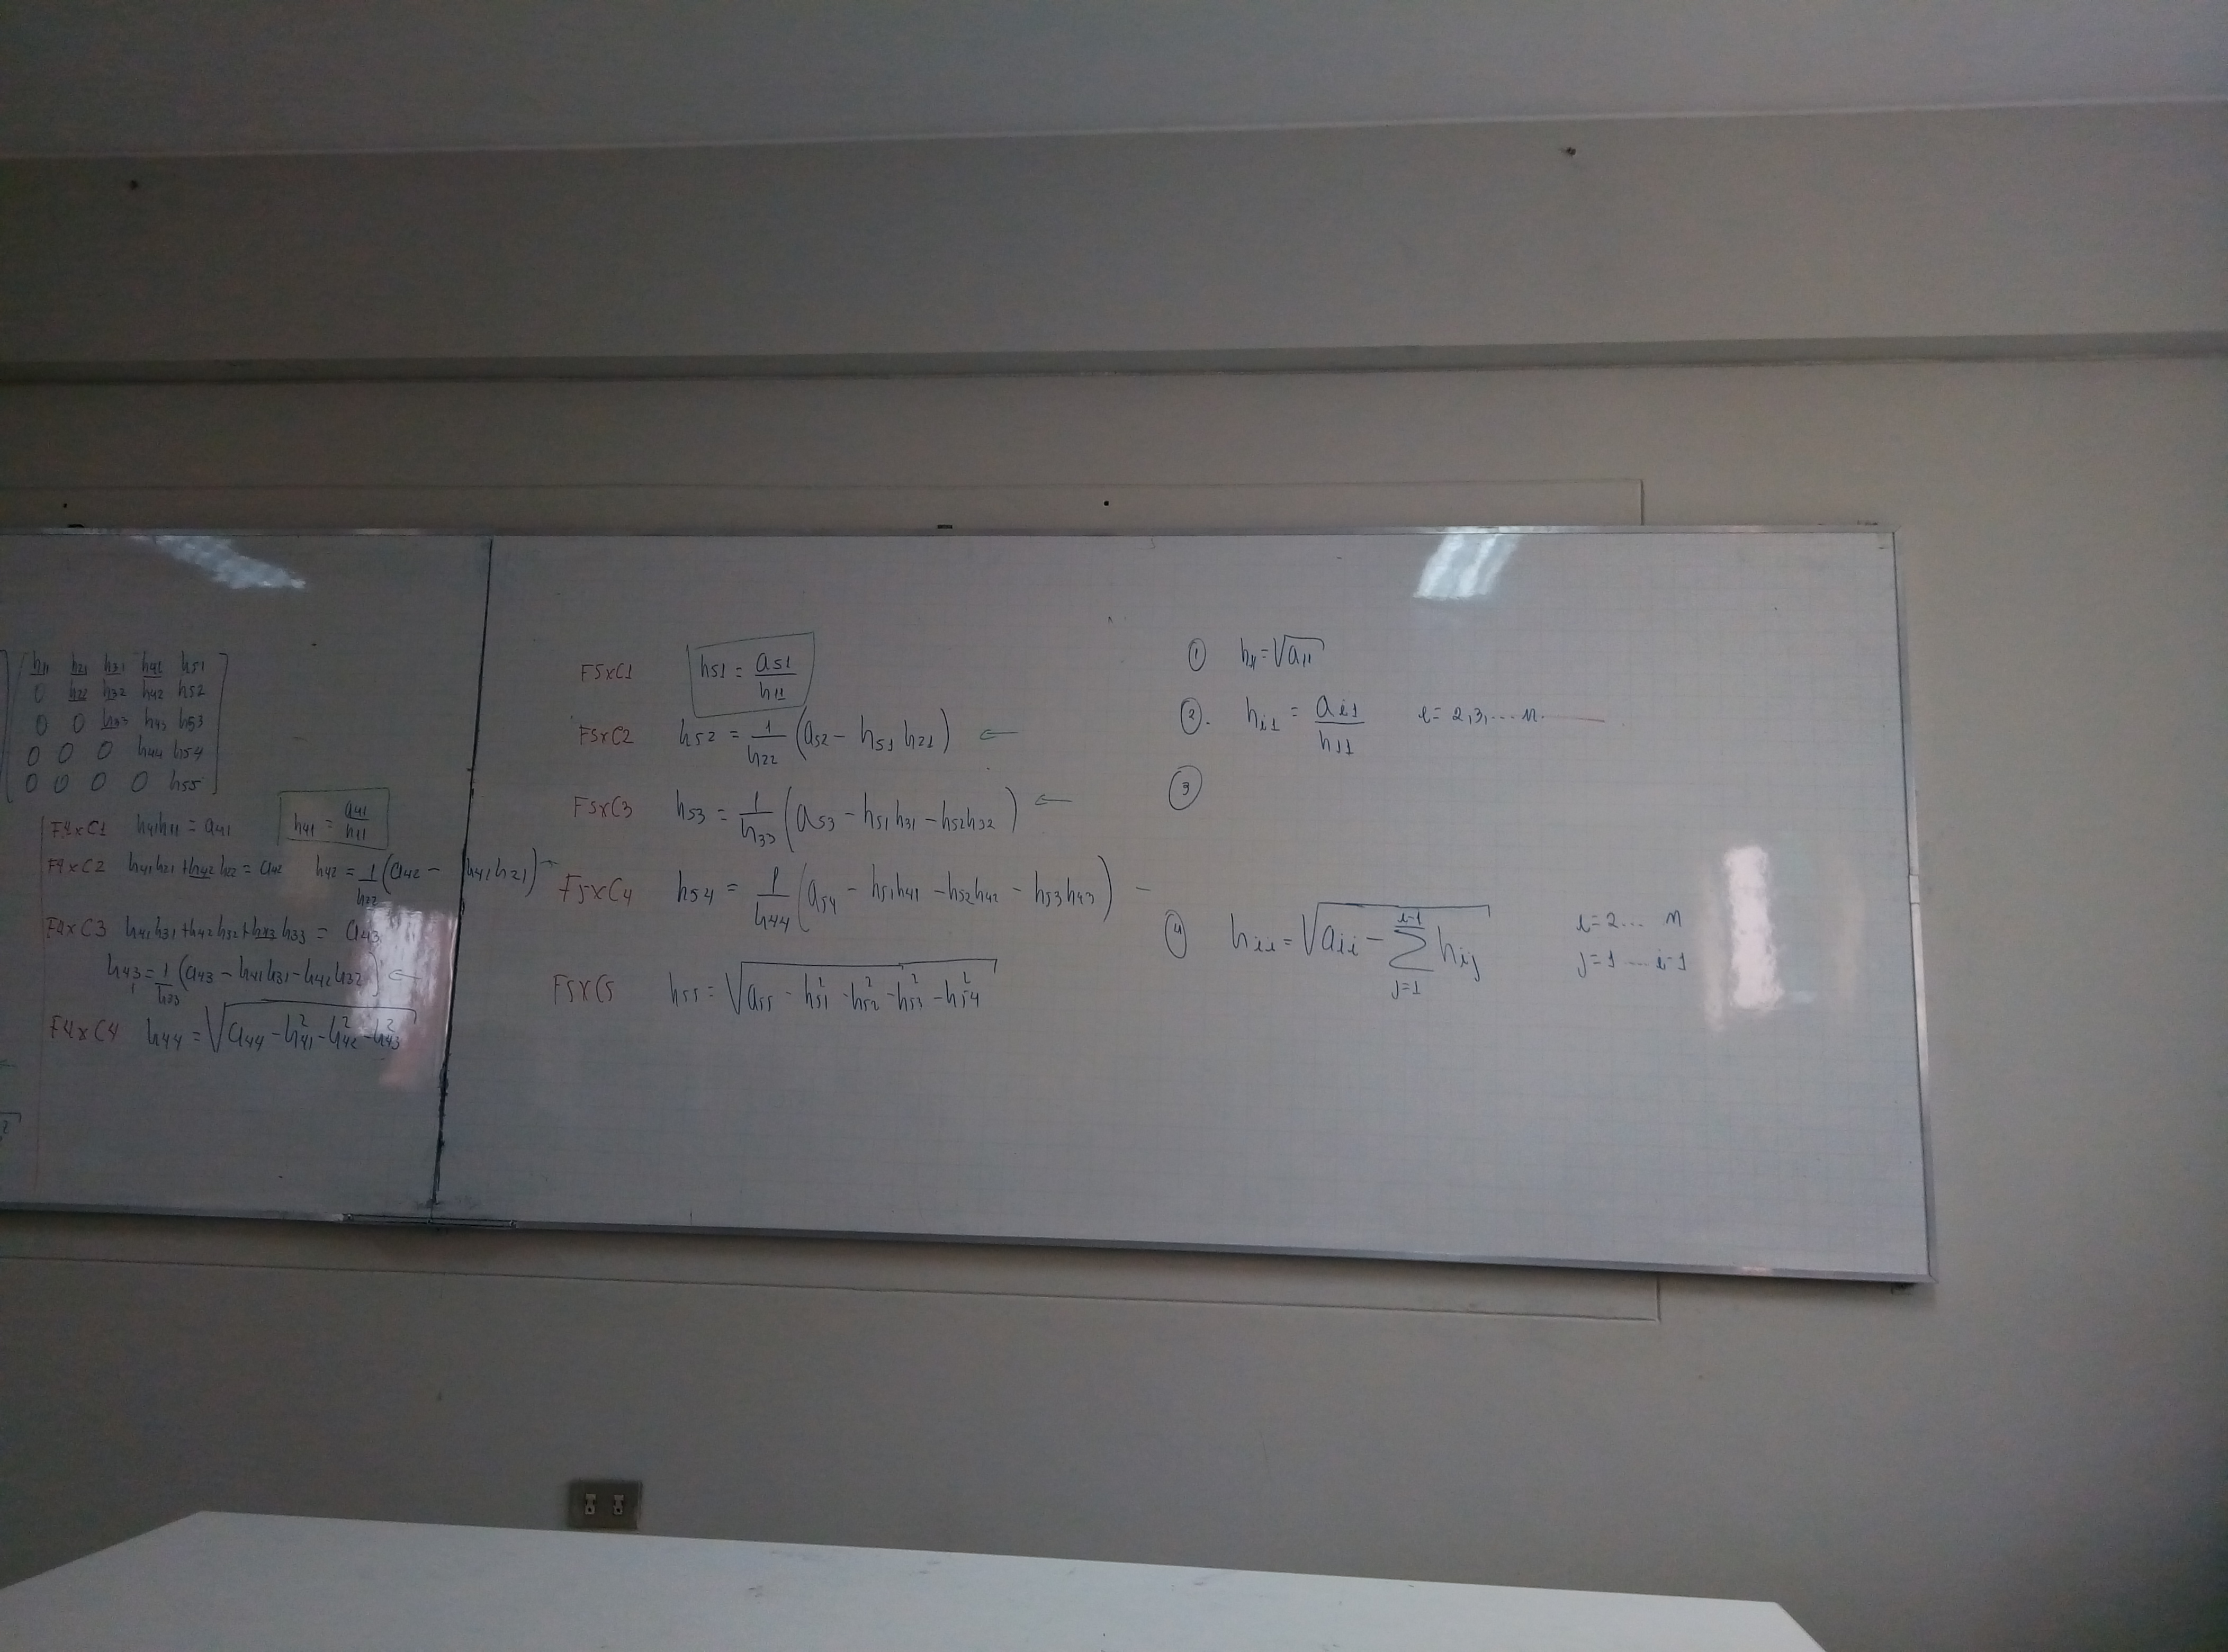 h11 h21 h31 h41 h51
0 h22 h32 h42 h52
0 0 h33 h43 h53
0 0 0 h44 h54
0 0 0 0 h55
F4xC1 h41h11 = a41 h41 = a41/h11
F4xC2 h41h21 + h42h22 = a42 h42 = 1/h22 (a42 − h41h21)
F4xC3 h41h31 + h42h32 + h43h33 = a43
h43 = 1/h33 (a43 − h41h31 − h42h32) ←
F4xC4 h44 = √(a44 − h41² − h42² − h43²)
F5xC1 h51 = a51/h11
F5xC2 h52 = 1/h22 (a52 − h51h21) ←
F5xC3 h53 = 1/h33 (a53 − h51h31 − h52h32) ←
F5xC4 h54 = 1/h44 (a54 − h51h41 − h52h42 − h53h43) −
F5xC5 h55 = √(a55 − h51² − h52² − h53² − h54²)
① h11 = √a11
②. hi1 = ai1/h11 i = 2,3,... n.
③
④ hii = √(aii − Σ_{j=1}^{i-1} hij) i = 2... n
j = 1 .... i-1